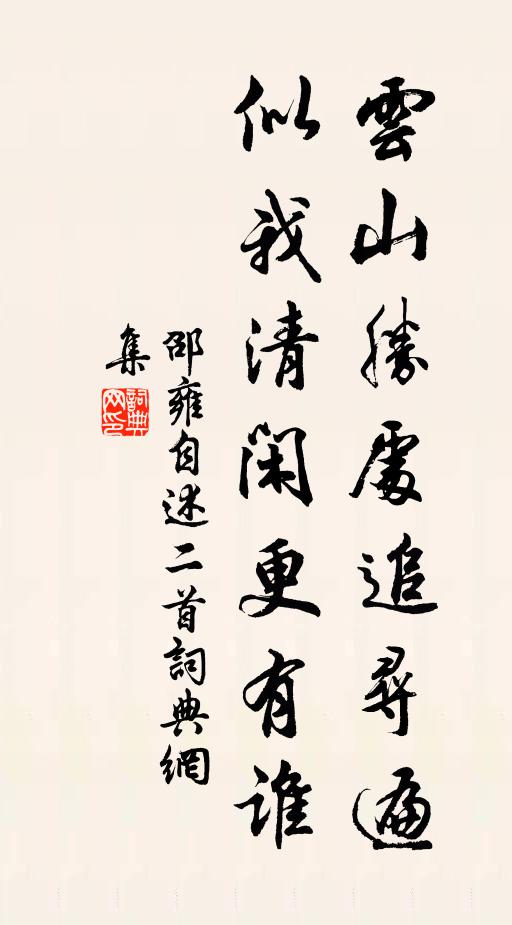 雲山勝處追尋遍
似我清閑更有誰
邵雍自述二首詞典網
集
詞典网印